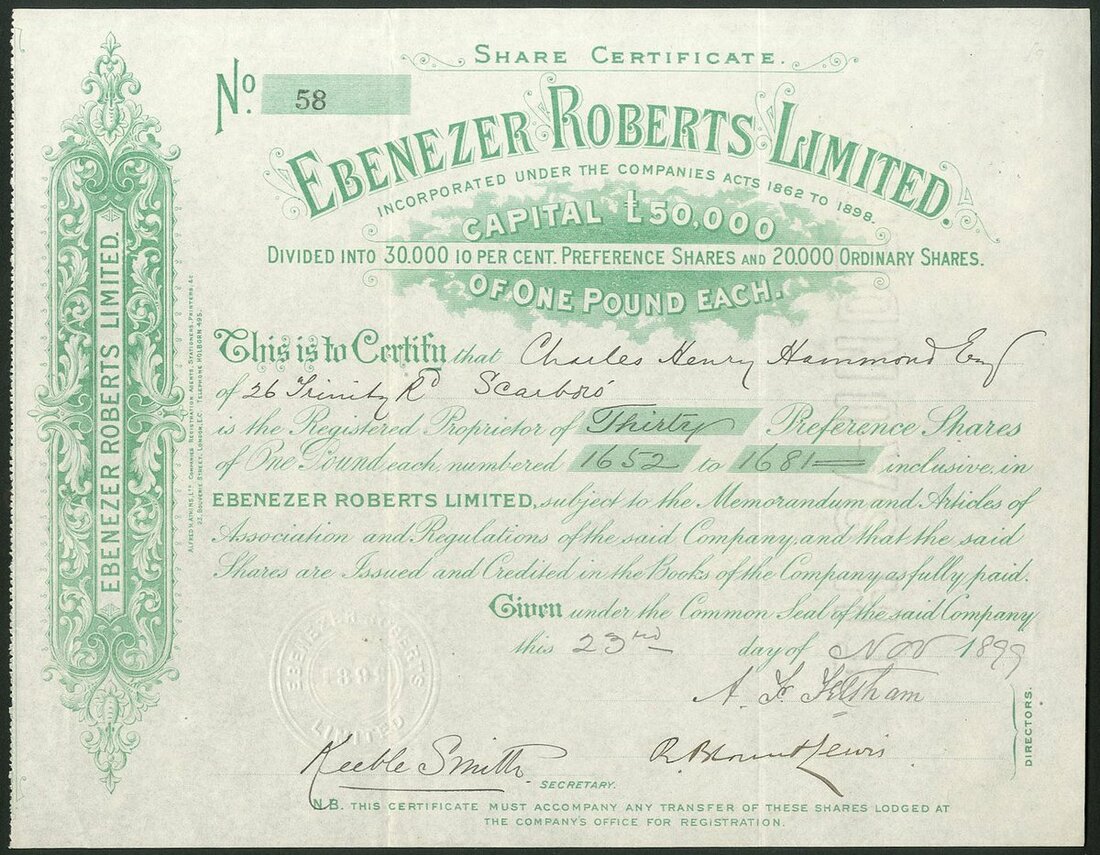 SHARE CERTIFICATE.
No. 58
EBENEZER ROBERTS LIMITED.
INCORPORATED UNDER THE COMPANIES ACTS 1862 TO 1898.
CAPITAL £50,000
DIVIDED INTO 30.000 10 PER CENT. PREFERENCE SHARES AND 20.000 ORDINARY SHARES.
OF ONE POUND EACH.
This is to Certify that Charles Henry Hammond Esq
of 26 Trinity Rd Scarboro'
is the Registered Proprietor of Thirty Preference Shares
of One Pound each, numbered 1652 to 1681 inclusive, in
EBENEZER ROBERTS LIMITED, subject to the Memorandum and Articles of
Association and Regulations of the said Company, and that the said
Shares are Issued and Credited in the Books of the Company as fully paid.
Given under the Common Seal of the said Company
this 23rd day of Nov 1899
A. Feltham
Keeble Smith
SECRETARY.
R. Blount Lewis
DIRECTORS.
N.B. THIS CERTIFICATE MUST ACCOMPANY ANY TRANSFER OF THESE SHARES LODGED AT
THE COMPANY'S OFFICE FOR REGISTRATION.
EBENEZER ROBERTS LIMITED.
ALFRED H. ATKINS, LTD. COMPANIES REGISTRATION AGENTS, STATIONERS, PRINTERS, &c
BOUVERIE STREET, LONDON, E.C. TELEPHONE HOLBORN 495.
EBENEZER ROBERTS
LIMITED